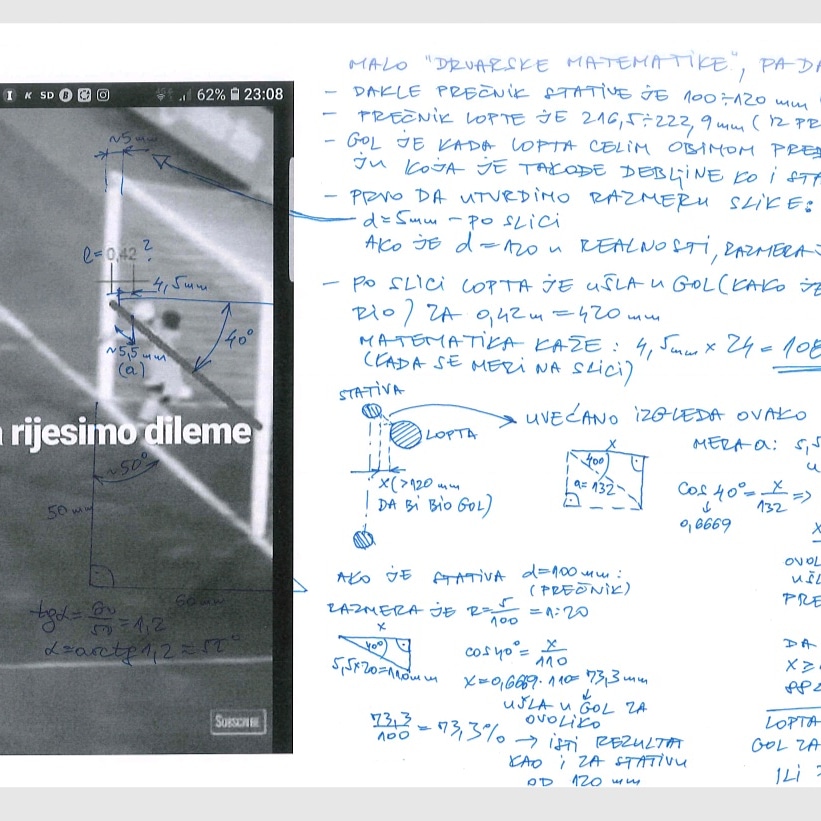 62% 23:08
~5mm
l=0,42 ?
4,5mm
40°
~5,5mm
(a)
rijesimo dileme
~50°
50mm
60mm
tgα=60/50=1,2
α=arctg 1,2=50°
SUBSCRIBE
MALO "DRVARSKE MATEMATIKE", PA DA
- DAKLE PREČNIK STATIVE JE 100÷120 mm
- PREČNIK LOPTE JE 216,5÷222,9mm (
- GOL JE KADA LOPTA CELIM OBIMOM
JU KOJA JE TAKOĐE DEBLJINE KO I
- PRVO DA UTVRDIMO RAZMERU SLIKE:
d=5mm - PO SLICI
AKO JE d=120 U REALNOSTI, RAZMERA
- PO SLICI LOPTA JE UŠLA U GOL (KAKO JE
BIO) ZA 0,42m = 420 mm
MATEMATIKA KAŽE: 4,5mm × 24 = 108
(KADA SE MERI NA SLICI)
STATIVA
UVEĆANO IZGLEDA OVAKO
LOPTA
X(>120 mm
DA BI BIO GOL)
MERA a: 5,5
X
40°
a=132
cos 40°= x/132 =>
0,6669
AKO JE STATIVA d=100 mm:
(PREČNIK)
RAZMERA JE R=5/100 = 1:20
X
40°
5,5×20=110mm
cos40°= x/110
X=0,6669·110= 73,3 mm
UŠLA U GOL ZA
OVOLIKO
73,3/100 = 73,3% → ISTI REZULTAT
KAO I ZA STATIVU
OD 120 mm
DA
LOPTA
GOL ZA
ILI